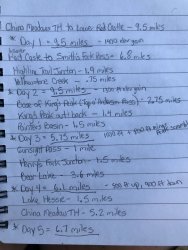 China Meadow TH to Lower Red Castle - 9.5 miles
* Day 1 = 9.5 miles - 1400
Lower
Red Castle to Smith's Fork Pass - 6.8 miles
Highline Trail Junction - 1.9 miles
Yellowstone Creek - .75 miles
* Day 2 = 9.5 miles -
Base of King's Peak (Top of Anderson Pass) - 2.75 miles
King's Peak out + back - 1.4 miles
Painter's Basin - 1.5 miles
* Day 3 = 5.75 miles -
Gunsight Pass - 1 mile
Henry's Fork Junction - 1.5 miles
Bear Lake - 3.6 miles
* Day 4 = 6.1 miles - 500 ft up, 900 ft down
Lake Hessie - 1.5 miles
China Meadow TH - 5.2 miles
* Day 5 = 6.7 miles -